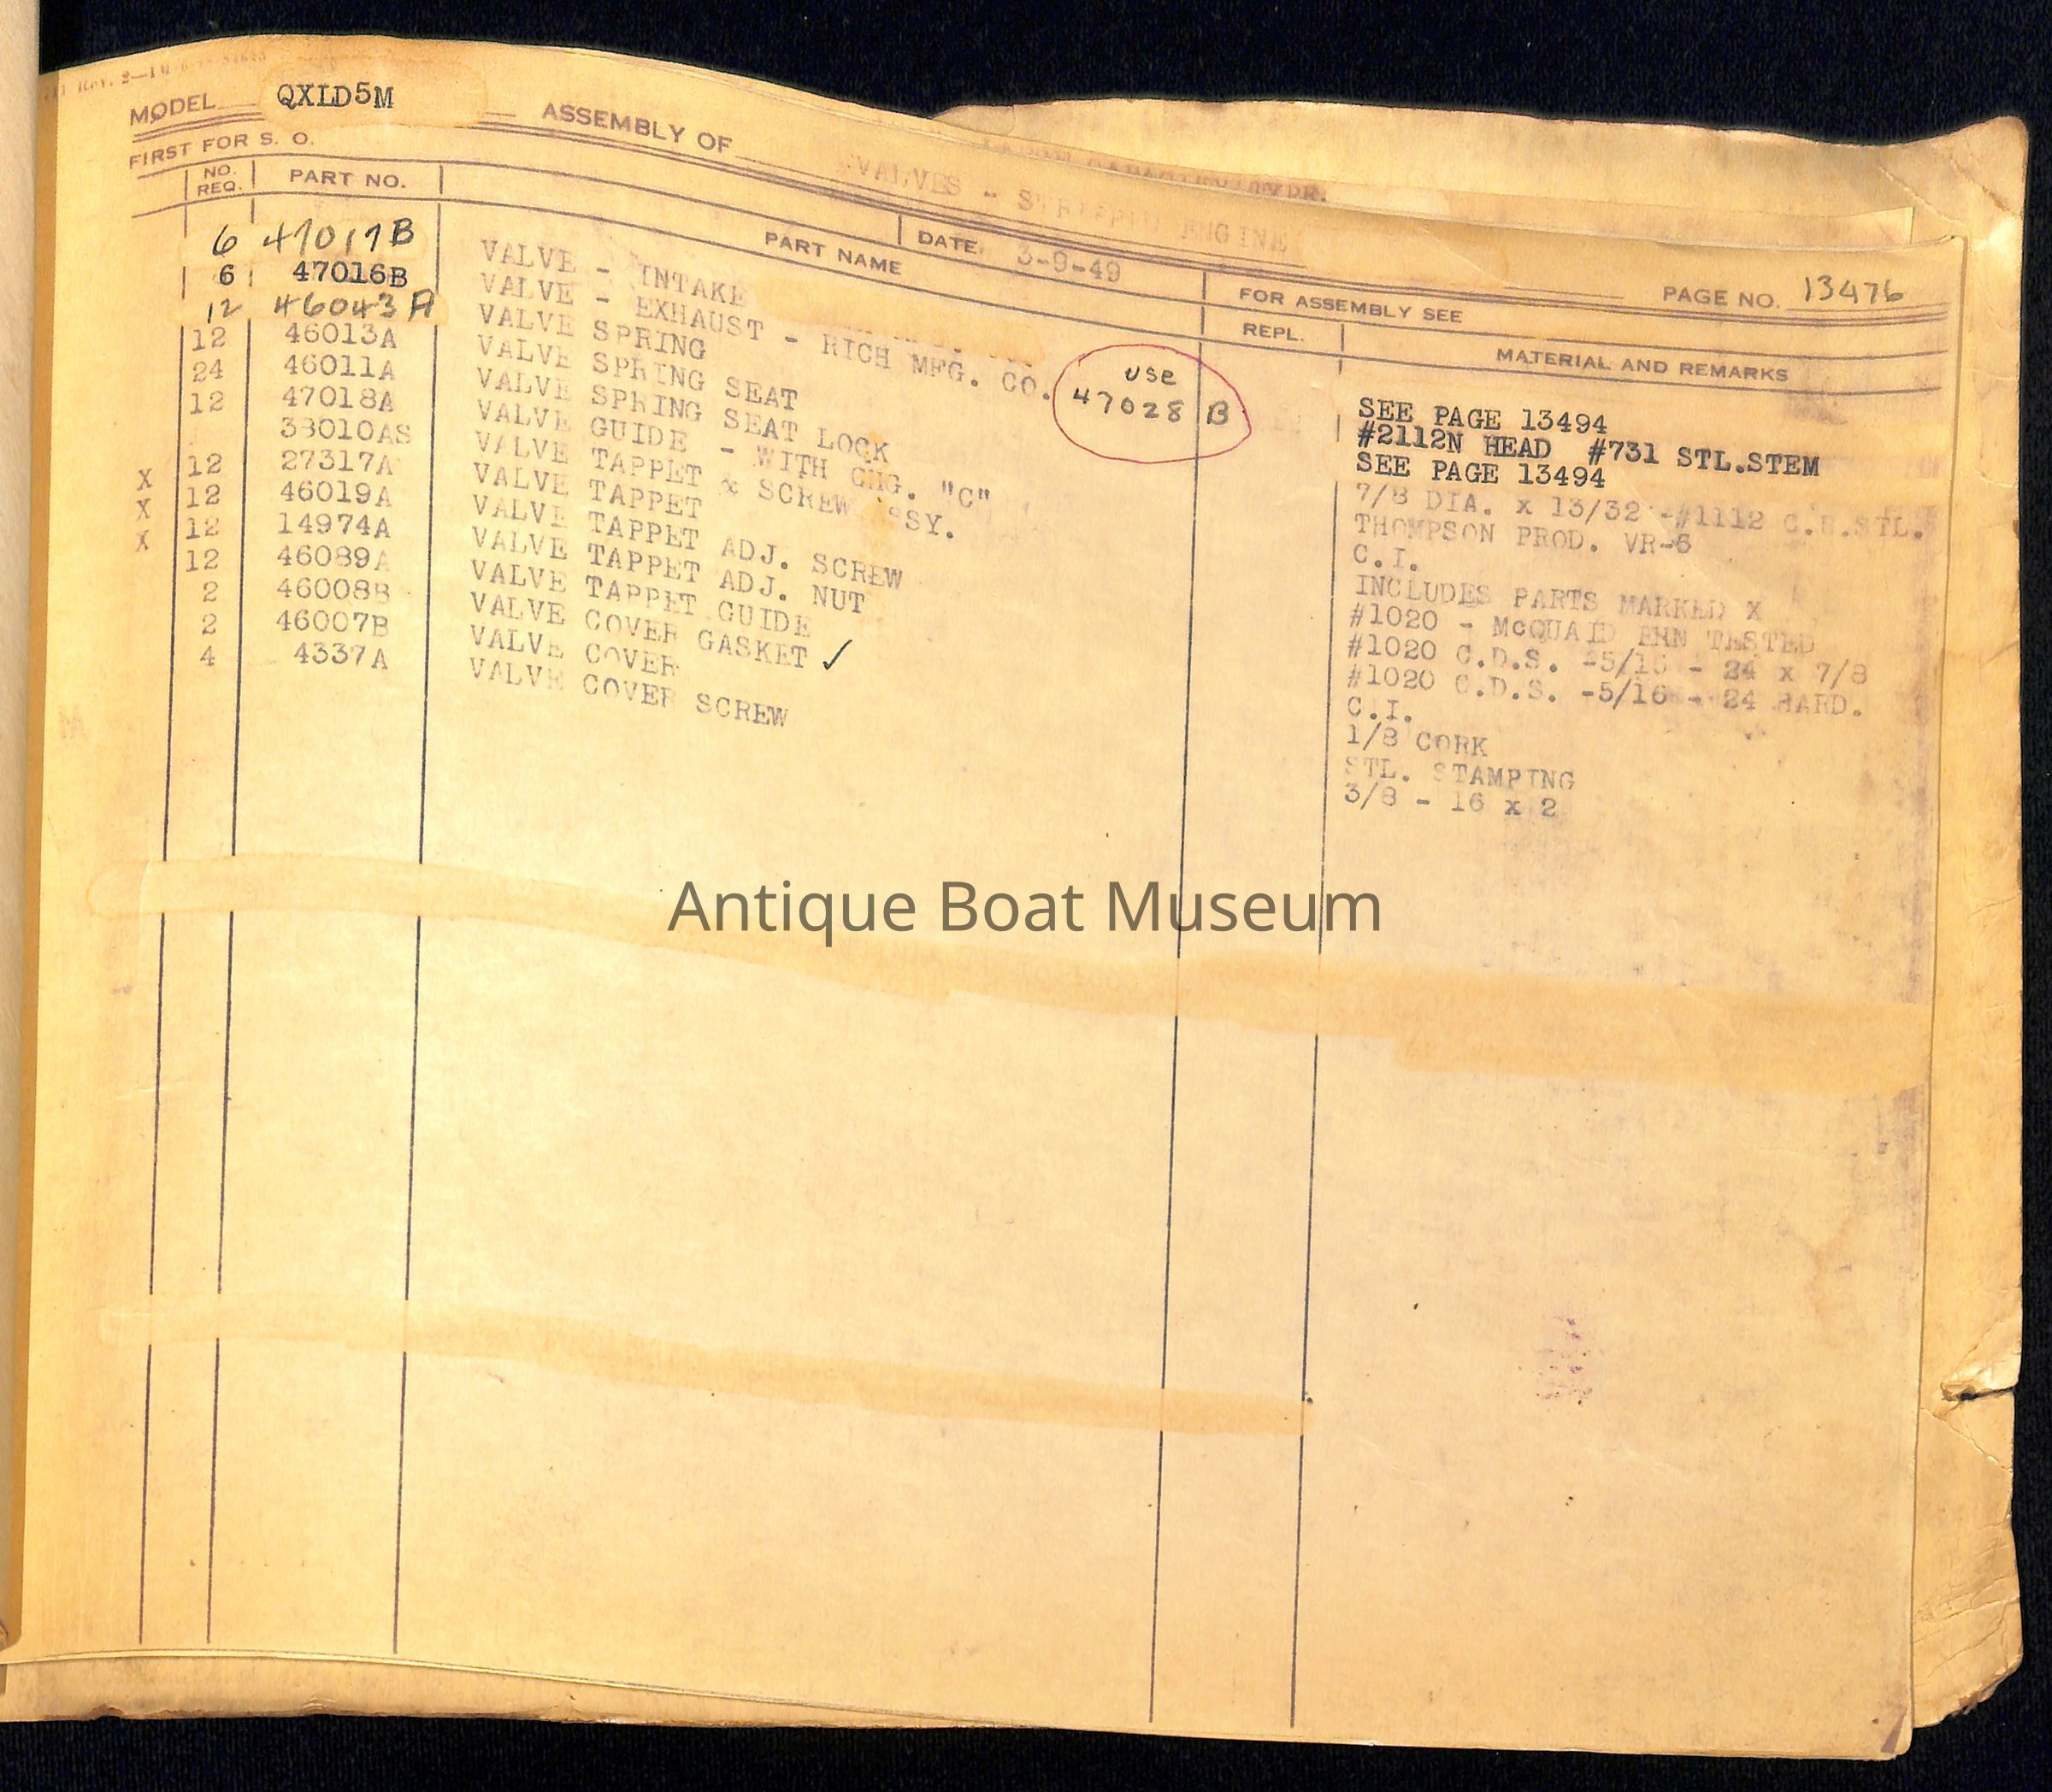 MODEL QXLD5M ASSEMBLY OF VALVES - STRIPPED ENGINE
FIRST FOR S. O. DATE 3-9-49 FOR ASSEMBLY SEE PAGE NO. 13476
NO. REQ. PART NO. PART NAME REPL. MATERIAL AND REMARKS
6 47017B VALVE - INTAKE SEE PAGE 13494
6 47016B VALVE - EXHAUST - RICH MFG. CO. use 47028 B #2112N HEAD #731 STL.STEM
12 46043A VALVE SPRING SEE PAGE 13494
12 46013A VALVE SPRING SEAT 7/8 DIA. x 13/32 -#1112 C.R.STL.
24 46011A VALVE SPRING SEAT LOCK THOMPSON PROD. VR-6
12 47018A VALVE GUIDE - WITH CHG. "C" C.I.
38010AS VALVE TAPPET & SCREW ASSY. INCLUDES PARTS MARKED X
X 12 27317A VALVE TAPPET #1020 - McQUAID EHN TESTED
X 12 46019A VALVE TAPPET ADJ. SCREW #1020 C.D.S. -5/16 - 24 x 7/8
X 12 14974A VALVE TAPPET ADJ. NUT #1020 C.D.S. -5/16 - 24 HARD.
12 46089A VALVE TAPPET GUIDE C.I.
2 46008B VALVE COVER GASKET ✓ 1/8 CORK
2 46007B VALVE COVER STL. STAMPING
4 4337A VALVE COVER SCREW 3/8 - 16 x 2
Antique Boat Museum